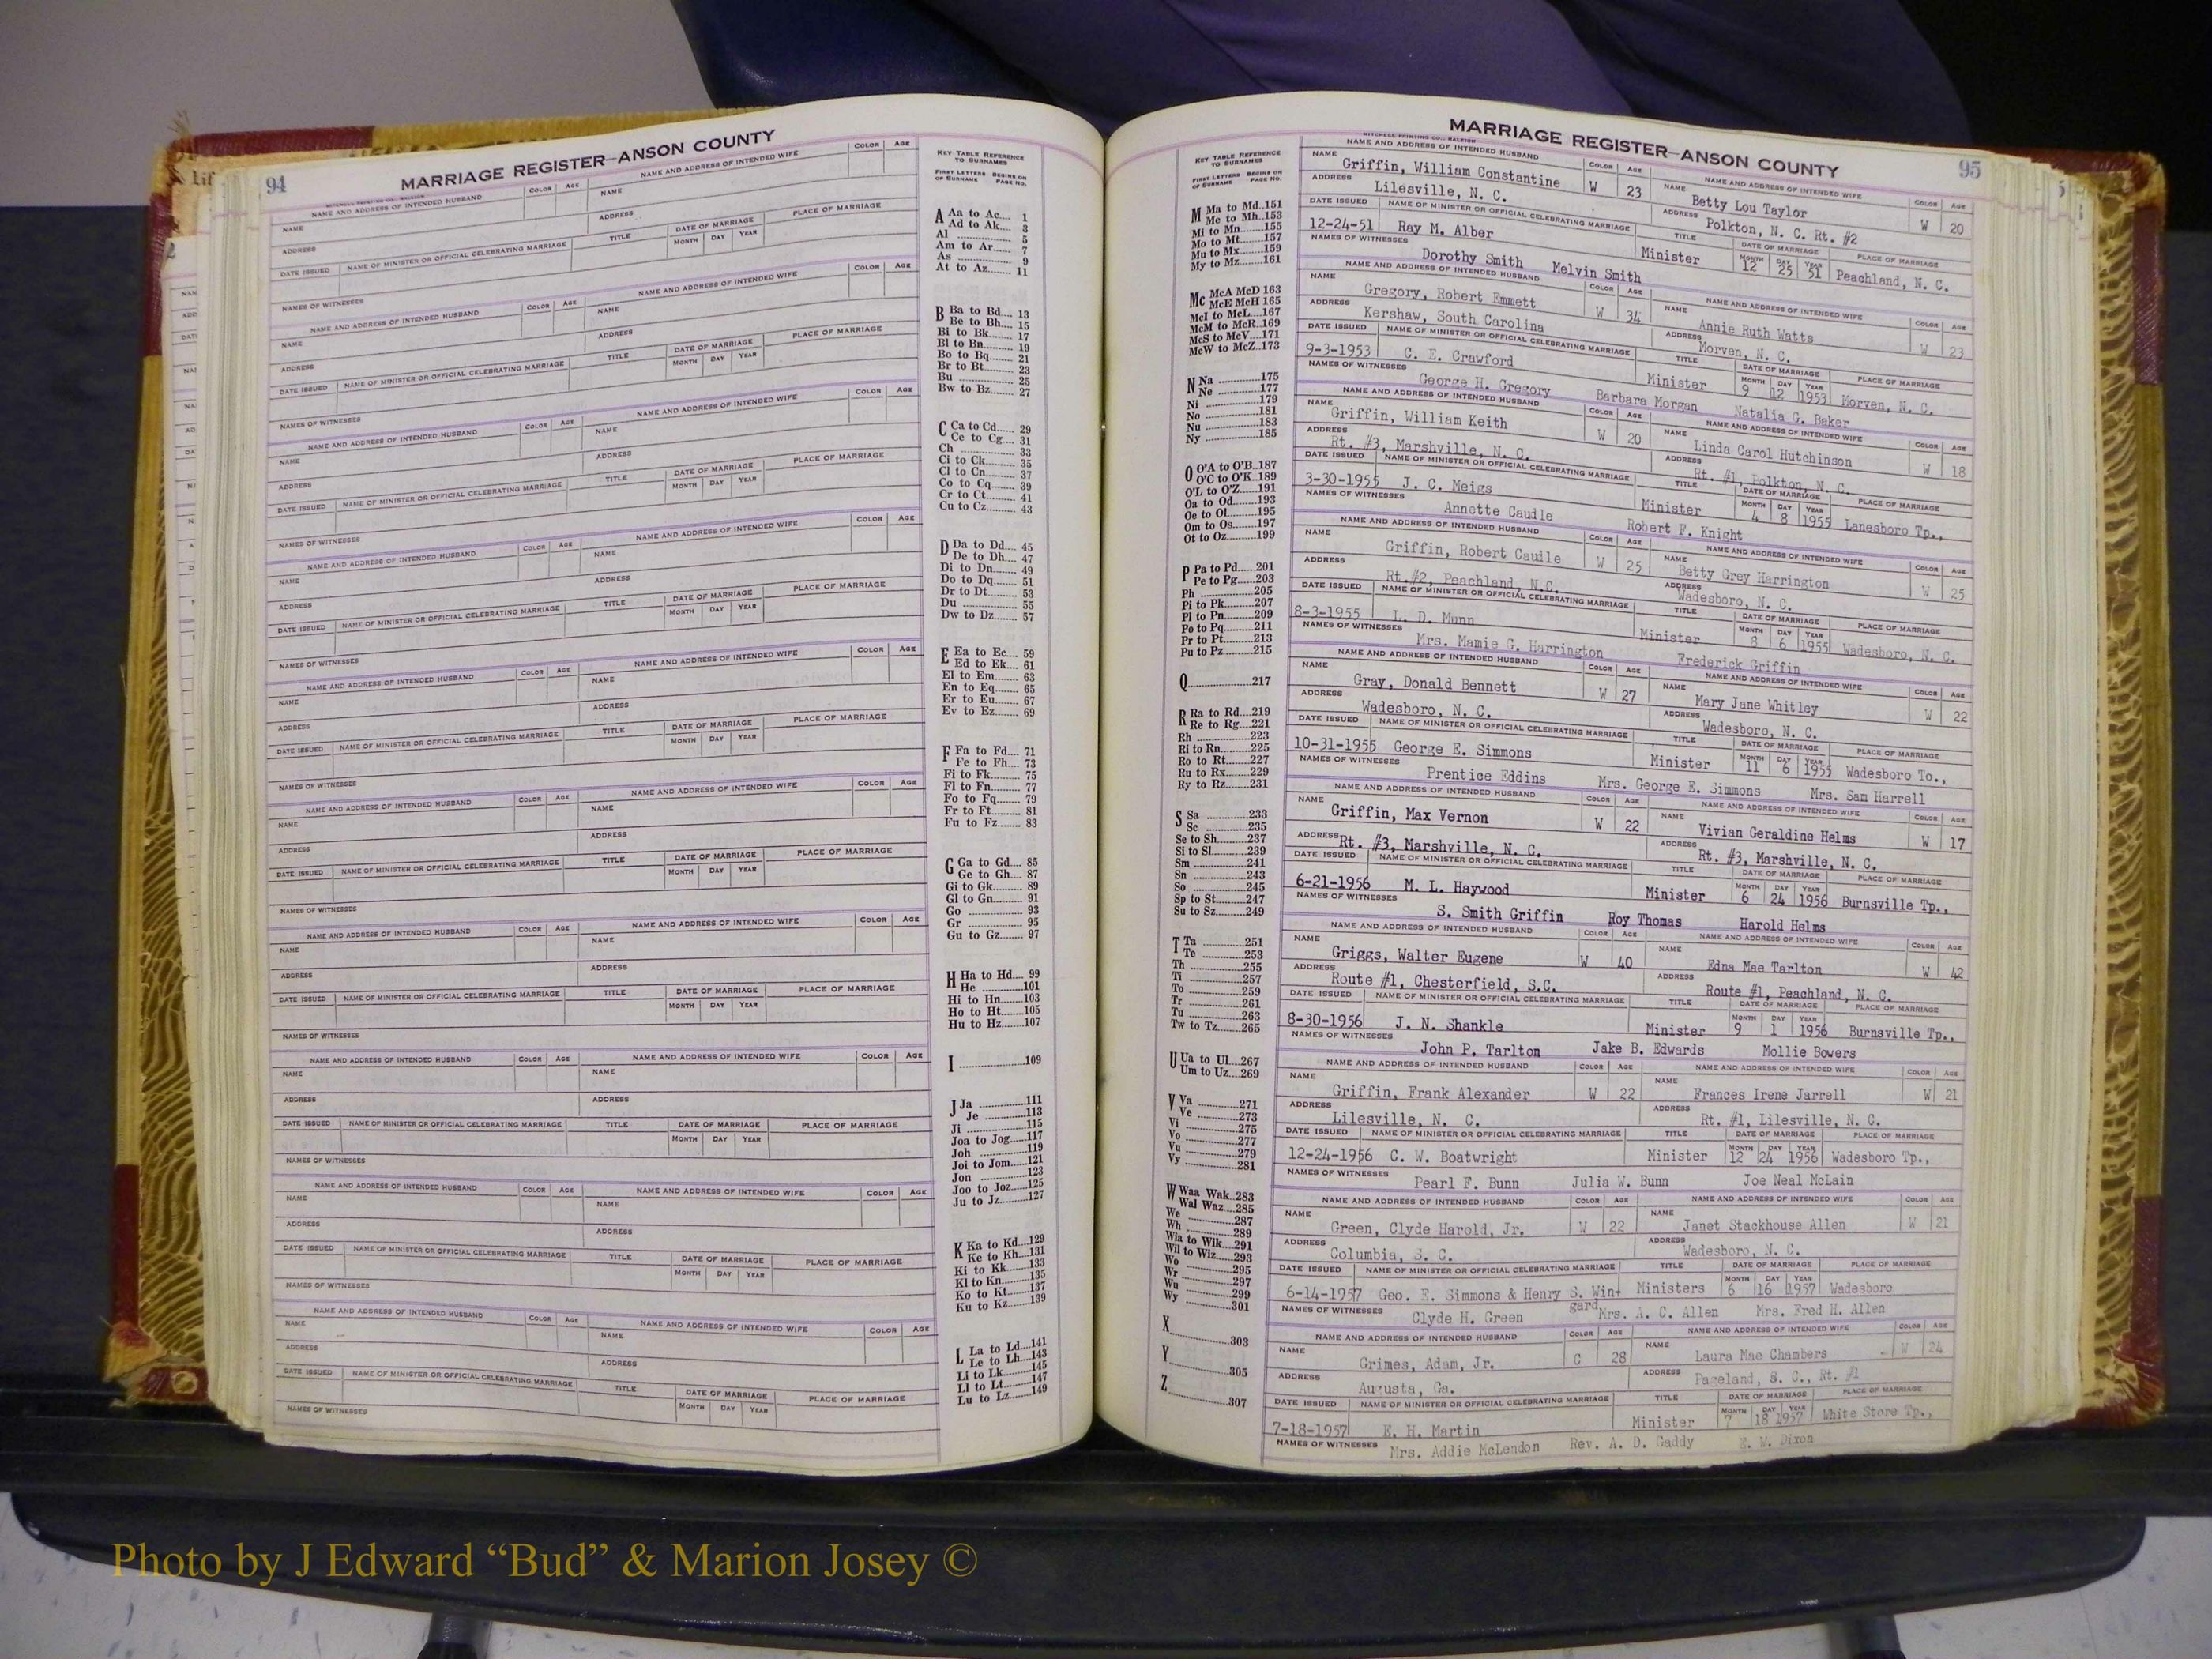 94
MARRIAGE REGISTER—ANSON COUNTY
MITCHELL PRINTING CO., RALEIGH
NAME AND ADDRESS OF INTENDED HUSBAND COLOR AGE NAME AND ADDRESS OF INTENDED WIFE COLOR AGE
NAME NAME
ADDRESS ADDRESS
DATE ISSUED NAME OF MINISTER OR OFFICIAL CELEBRATING MARRIAGE TITLE DATE OF MARRIAGE PLACE OF MARRIAGE
MONTH DAY YEAR
NAMES OF WITNESSES
KEY TABLE REFERENCE
TO SURNAMES
FIRST LETTERS BEGINS ON
OF SURNAME PAGE NO.
A Aa to Ac.... 1
Ad to Ak.... 3
Al 5
Am to Ar.... 7
As 9
At to Az....... 11
B Ba to Bd.... 13
Be to Bh.... 15
Bi to Bk........ 17
Bl to Bn........ 19
Bo to Bq....... 21
Br to Bt........ 23
Bu 25
Bw to Bz....... 27
C Ca to Cd.... 29
Ce to Cg.... 31
Ch 33
Ci to Ck........ 35
Cl to Cn........ 37
Co to Cq....... 39
Cr to Ct........ 41
Cu to Cz........ 43
D Da to Dd.... 45
De to Dh.... 47
Di to Dn........ 49
Do to Dq....... 51
Dr to Dt........ 53
Du 55
Dw to Dz....... 57
E Ea to Ec.... 59
Ed to Ek.... 61
El to Em....... 63
En to Eq....... 65
Er to Eu....... 67
Ev to Ez....... 69
F Fa to Fd.... 71
Fe to Fh.... 73
Fi to Fk........ 75
Fl to Fn........ 77
Fo to Fq....... 79
Fr to Ft........ 81
Fu to Fz....... 83
G Ga to Gd.... 85
Ge to Gh.... 87
Gi to Gk........ 89
Gl to Gn........ 91
Go 93
Gr 95
Gu to Gz....... 97
H Ha to Hd.... 99
He 101
Hi to Hn........103
Ho to Ht........105
Hu to Hz.......107
I 109
J Ja 111
Je 113
Ji 115
Joa to Jog......117
Joh 119
Joi to Jom......121
Jon 123
Joo to Joz......125
Ju to Jz.........127
K Ka to Kd....129
Ke to Kh....131
Ki to Kk........133
Kl to Kn........135
Ko to Kt........137
Ku to Kz.......139
L La to Ld....141
Le to Lh....143
Li to Lk........145
Ll to Lt........147
Lu to Lz........149
95
MARRIAGE REGISTER—ANSON COUNTY
MITCHELL PRINTING CO., RALEIGH
KEY TABLE REFERENCE
TO SURNAMES
FIRST LETTERS BEGINS ON
OF SURNAME PAGE NO.
M Ma to Md..151
Me to Mh..153
Mi to Mn.......155
Mo to Mt.......157
Mu to Mx......159
My to Mz......161
Mc McA McD 163
McE McH 165
McI to McL....167
McM to McR..169
McS to McV....171
McW to McZ..173
N Na 175
Ne 177
Ni 179
No 181
Nu 183
Ny 185
O O'A to O'B..187
O'C to O'K..189
O'L to O'Z......191
Oa to Od........193
Oe to Ol........195
Om to Os.......197
Ot to Oz........199
P Pa to Pd.....201
Pe to Pg.....203
Ph 205
Pi to Pk.........207
Pl to Pn.........209
Po to Pq........211
Pr to Pt.........213
Pu to Pz........215
Q 217
R Ra to Rd....219
Re to Rg....221
Rh 223
Ri to Rn........225
Ro to Rt........227
Ru to Rx........229
Ry to Rz........231
S Sa 233
Sc 235
Se to Sh........237
Si to Sl.........239
Sm 241
Sn 243
So 245
Sp to St........247
Su to Sz........249
T Ta 251
Te 253
Th 255
Ti 257
To 259
Tr 261
Tu 263
Tw to Tz........265
U Ua to Ul....267
Um to Uz....269
V Va 271
Ve 273
Vi 275
Vo 277
Vu 279
Vy 281
W Waa Wak..283
Wal Waz....285
We 287
Wh 289
Wia to Wik....291
Wil to Wiz.....293
Wo 295
Wr 297
Wu 299
Wy 301
X 303
Y 305
Z 307
NAME AND ADDRESS OF INTENDED HUSBAND COLOR AGE NAME AND ADDRESS OF INTENDED WIFE COLOR AGE
NAME Griffin, William Constantine W 23 NAME Betty Lou Taylor W 20
ADDRESS Lilesville, N. C. ADDRESS Polkton, N. C. Rt. #2
DATE ISSUED NAME OF MINISTER OR OFFICIAL CELEBRATING MARRIAGE TITLE DATE OF MARRIAGE PLACE OF MARRIAGE
12-24-51 Ray M. Alber Minister 12 25 51 Peachland, N. C.
NAMES OF WITNESSES Dorothy Smith Melvin Smith
NAME Gregory, Robert Emmett W 34 NAME Annie Ruth Watts W 23
ADDRESS Kershaw, South Carolina ADDRESS Morven, N. C.
9-3-1953 C. E. Crawford Minister 9 12 1953 Morven, N. C.
NAMES OF WITNESSES George H. Gregory Barbara Morgan Natalia G. Baker
NAME Griffin, William Keith W 20 NAME Linda Carol Hutchinson W 18
ADDRESS Rt. #3, Marshville, N. C. ADDRESS Rt. #1, Polkton, N. C.
3-30-1955 J. C. Meigs Minister 4 8 1955 Lanesboro Tp.,
NAMES OF WITNESSES Annette Caudle Robert F. Knight
NAME Griffin, Robert Caudle W 25 NAME Betty Grey Harrington W 25
ADDRESS Rt.#2, Peachland, N.C. ADDRESS Wadesboro, N. C.
8-3-1955 L. D. Munn Minister 8 6 1955 Wadesboro, N. C.
NAMES OF WITNESSES Mrs. Mamie G. Harrington Frederick Griffin
NAME Gray, Donald Bennett W 27 NAME Mary Jane Whitley W 22
ADDRESS Wadesboro, N. C. ADDRESS Wadesboro, N. C.
10-31-1955 George E. Simmons Minister 11 6 1955 Wadesboro To.,
NAMES OF WITNESSES Prentice Eddins Mrs. George E. Simmons Mrs. Sam Harrell
NAME Griffin, Max Vernon W 22 NAME Vivian Geraldine Helms W 17
ADDRESS Rt. #3, Marshville, N. C. ADDRESS Rt. #3, Marshville, N. C.
6-21-1956 M. L. Haywood Minister 6 24 1956 Burnsville Tp.,
NAMES OF WITNESSES S. Smith Griffin Roy Thomas Harold Helms
NAME Griggs, Walter Eugene W 40 NAME Edna Mae Tarlton W 42
ADDRESS Route #1, Chesterfield, S.C. ADDRESS Route #1, Peachland, N. C.
8-30-1956 J. N. Shankle Minister 9 1 1956 Burnsville Tp.,
NAMES OF WITNESSES John P. Tarlton Jake B. Edwards Mollie Bowers
NAME Griffin, Frank Alexander W 22 NAME Frances Irene Jarrell W 21
ADDRESS Lilesville, N. C. ADDRESS Rt. #1, Lilesville, N. C.
12-24-1956 C. W. Boatwright Minister 12 24 1956 Wadesboro Tp.,
NAMES OF WITNESSES Pearl F. Bunn Julia W. Bunn Joe Neal McLain
NAME Green, Clyde Harold, Jr. W 22 NAME Janet Stackhouse Allen W 21
ADDRESS Columbia, S. C. ADDRESS Wadesboro, N. C.
6-14-1957 Geo. E. Simmons & Henry S. Win- Ministers 6 16 1957 Wadesboro
gard
NAMES OF WITNESSES Clyde H. Green Mrs. A. C. Allen Mrs. Fred H. Allen
NAME Grimes, Adam, Jr. C 28 NAME Laura Mae Chambers W 24
ADDRESS Augusta, Ga. ADDRESS Pageland, S. C., Rt. #1
7-18-1957 E. H. Martin Minister 7 18 1957 White Store Tp.,
NAMES OF WITNESSES Mrs. Addie McLendon Rev. A. D. Gaddy E. W. Dixon
Photo by J Edward “Bud” & Marion Josey ©